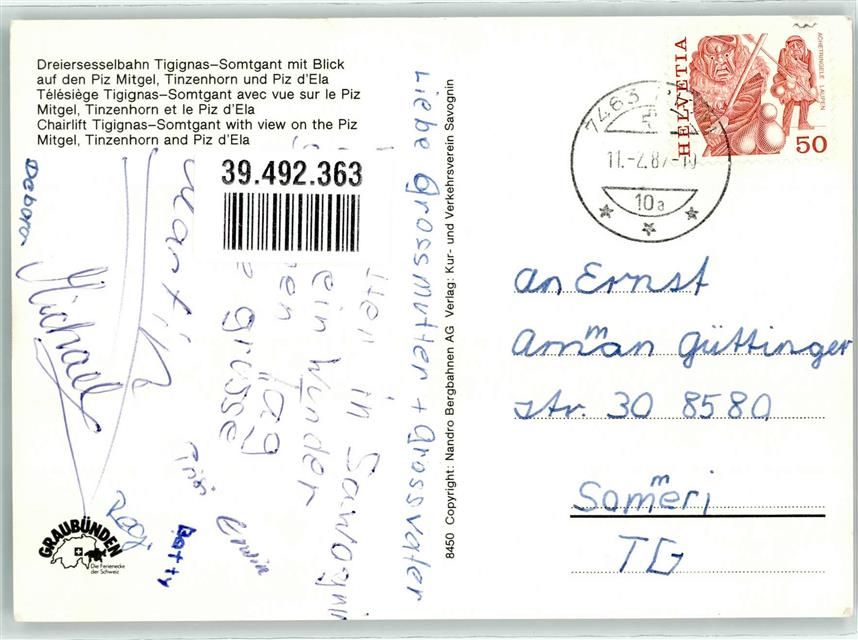 Dreiersesselbahn Tigignas–Somtgant mit Blick
auf den Piz Mitgel, Tinzenhorn und Piz d'Ela
Télésiège Tigignas–Somtgant avec vue sur le Piz
Mitgel, Tinzenhorn et le Piz d'Ela
Chairlift Tigignas–Somtgant with view on the Piz
Mitgel, Tinzenhorn and Piz d'Ela
39.492.363
Liebe Grossmutter + Grossvater
in Savogni
ein Wunder
grosse
Martin
Michael
Debora
Trisi
Erwin
Betty
GRAUBÜNDEN
Die Ferienecke
der Schweiz
8450 Copyright: Nandro Bergbahnen AG Verlag: Kur- und Verkehrsverein Savognin
HELVETIA
ACHETRINGELE LAUPEN
50
7463
11.-2.87-10
10a
An Ernst
Amman Güttinger
str. 30 8580
Someri
TG